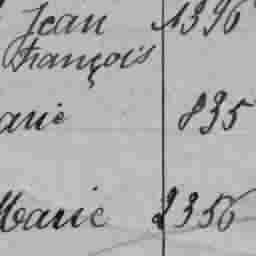 Jean 1396
François
arie 835
Marie 2356